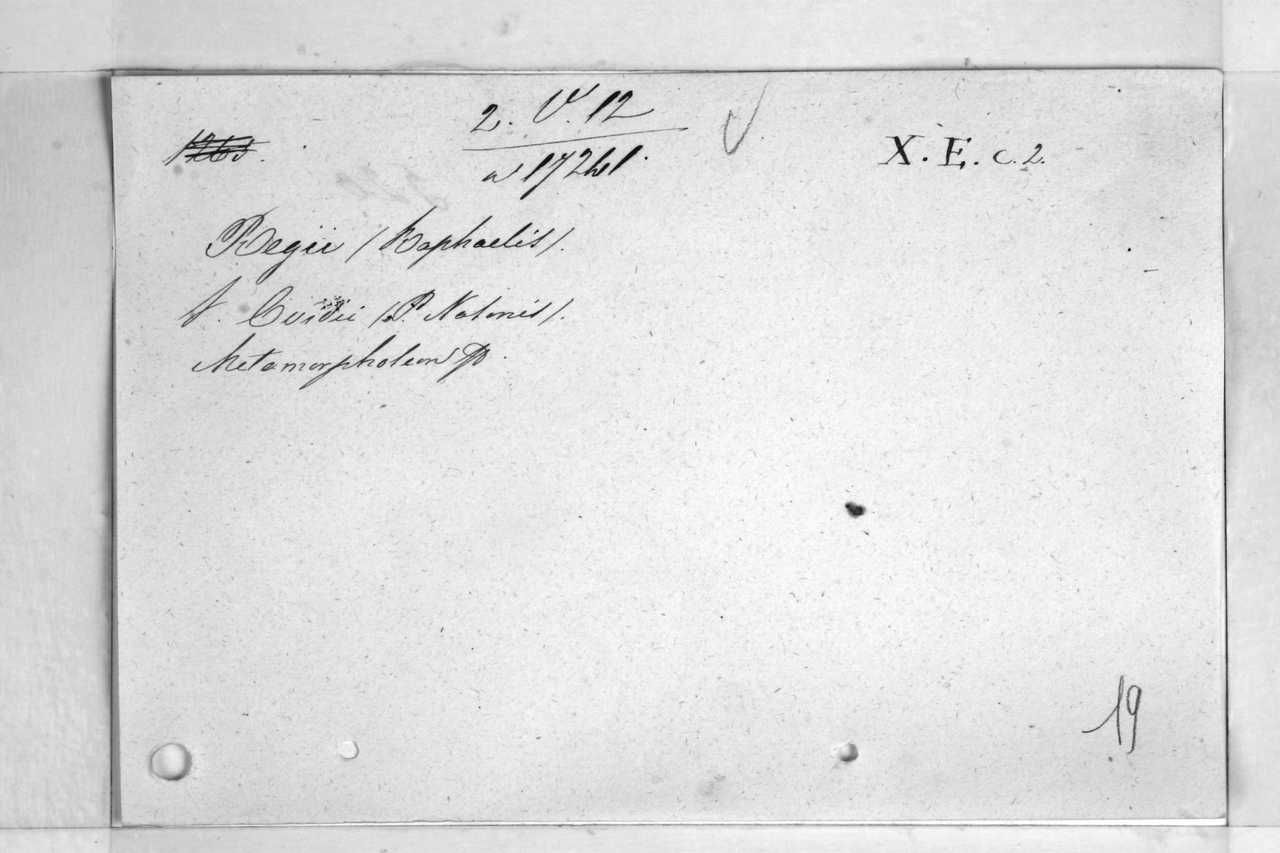 2. V. 12
X. E. c. 2.
a 17241.
Regii (Raphaelis).
v. Ovidii (P. Nasonis).
Metamorphoseon
19